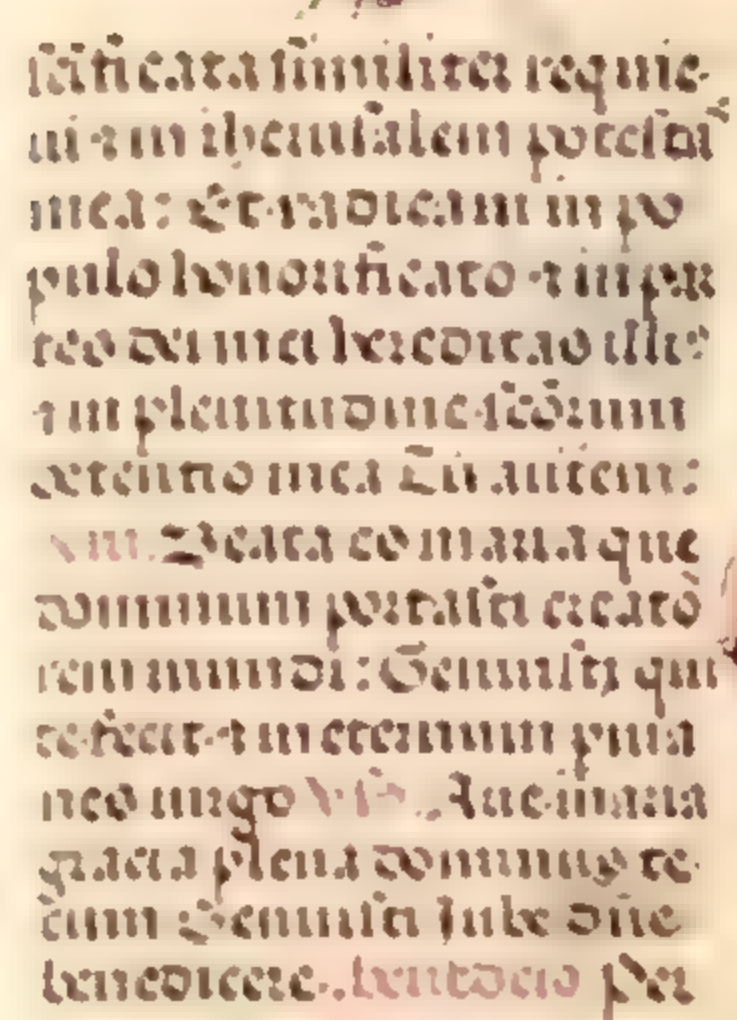 ficata similiter requie-
ui ⁊ in iherusalem potestas
mea: Et radicaui in po
pulo honorificato ⁊ in par
tes dei mei hereditas illi⁹
⁊ in plenitudine sc̄orum
detentio mea Tu autem:
Beata es maria que
dominum portasti creato
rem mundi: Genuisti qui
te fecit ⁊ in eternum p̲ma
nes uirgo V̄s. Aue maria
gracia plena dominus te-
cum Genuisti Iube dn̄e
benedicere.. benedictio Per